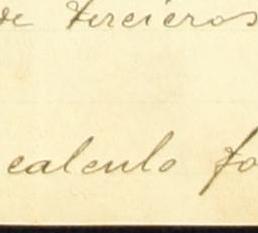 de Terceros
calculo fo